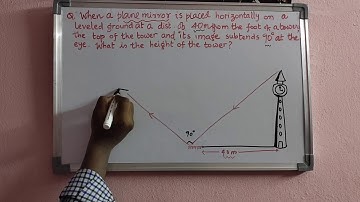 Q. When a plane mirror is placed horizontally on a
leveled ground at a dist of 40m from the foot of a tower,
the top of the tower and its image subtends 90° at the
eye. What is the height of the tower?
90°